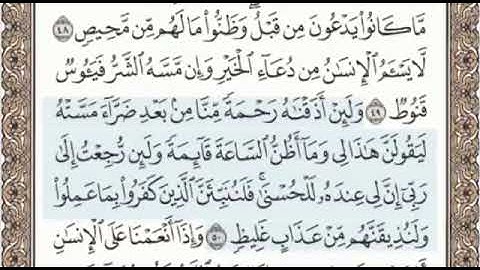 مَّا كَانُوا۟ يَدْعُونَ مِن قَبْلُ وَظَنُّوا۟ مَا لَهُم مِّن مَّحِيصٍ ٤٨
لَّا يَسْـَٔمُ ٱلْإِنسَـٰنُ مِن دُعَآءِ ٱلْخَيْرِ وَإِن مَّسَّهُ ٱلشَّرُّ فَيَـُٔوسٌ
قَنُوطٌ ٤٩ وَلَئِنْ أَذَقْنَـٰهُ رَحْمَةً مِّنَّا مِنۢ بَعْدِ ضَرَّآءَ مَسَّتْهُ
لَيَقُولَنَّ هَـٰذَا لِى وَمَآ أَظُنُّ ٱلسَّاعَةَ قَآئِمَةً وَلَئِن رُّجِعْتُ إِلَىٰ
رَبِّىٓ إِنَّ لِى عِندَهُۥ لَلْحُسْنَىٰ ۚ فَلَنُنَبِّئَنَّ ٱلَّذِينَ كَفَرُوا۟ بِمَا عَمِلُوا۟
وَلَنُذِيقَنَّهُم مِّنْ عَذَابٍ غَلِيظٍ ٥٠ وَإِذَآ أَنْعَمْنَا عَلَى ٱلْإِنسَـٰنِ